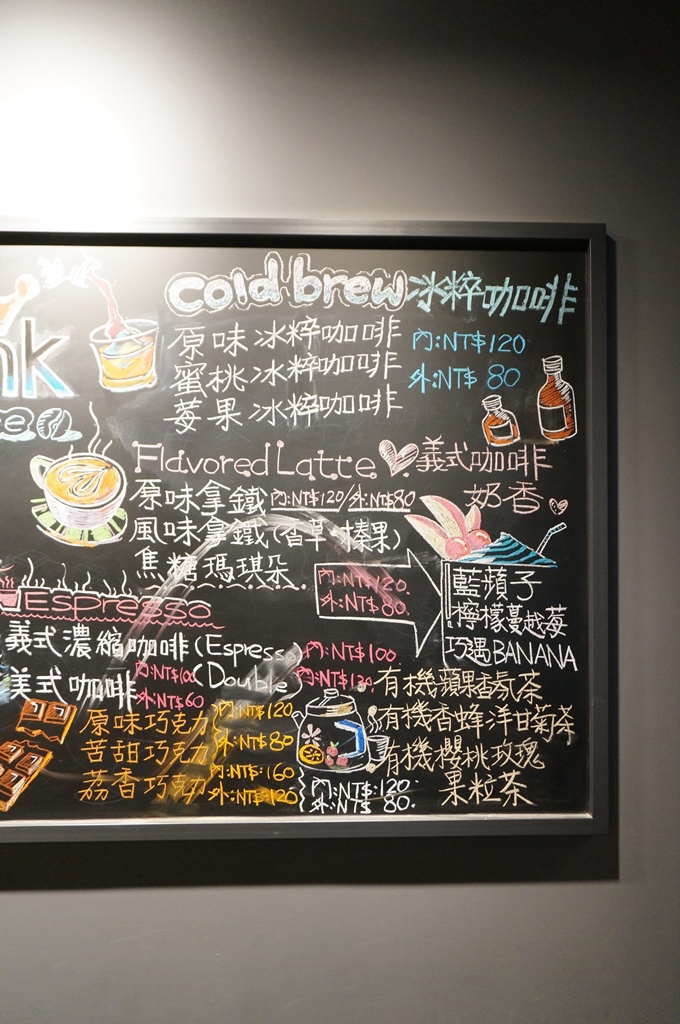 nk
Cold brew 冰粹咖啡
原味冰粹咖啡
蜜桃冰粹咖啡
莓果冰粹咖啡
內:NT$120
外:NT$ 80
Flavored Latte 義式咖啡
奶香
原味拿鐵 內:NT$120/外:NT$80
風味拿鐵(香草、榛果)
焦糖瑪琪朵
內:NT$120.
外:NT$ 80.
藍蘋子
檸檬蔓越莓
巧遇BANANA
Espresso
義式濃縮咖啡(Espresso 內:NT$100
(Double) 內:NT$120
美式咖啡 內:NT$100
外:NT$60
原味巧克力 內:NT$120
苦甜巧克力 外:NT$80
荔香巧克力 內:NT$160
外:NT$120
有機蘋果香氛茶
有機香蜂洋甘菊茶
有機櫻桃玫瑰
果粒茶
內:NT$120
外:NT$ 80.